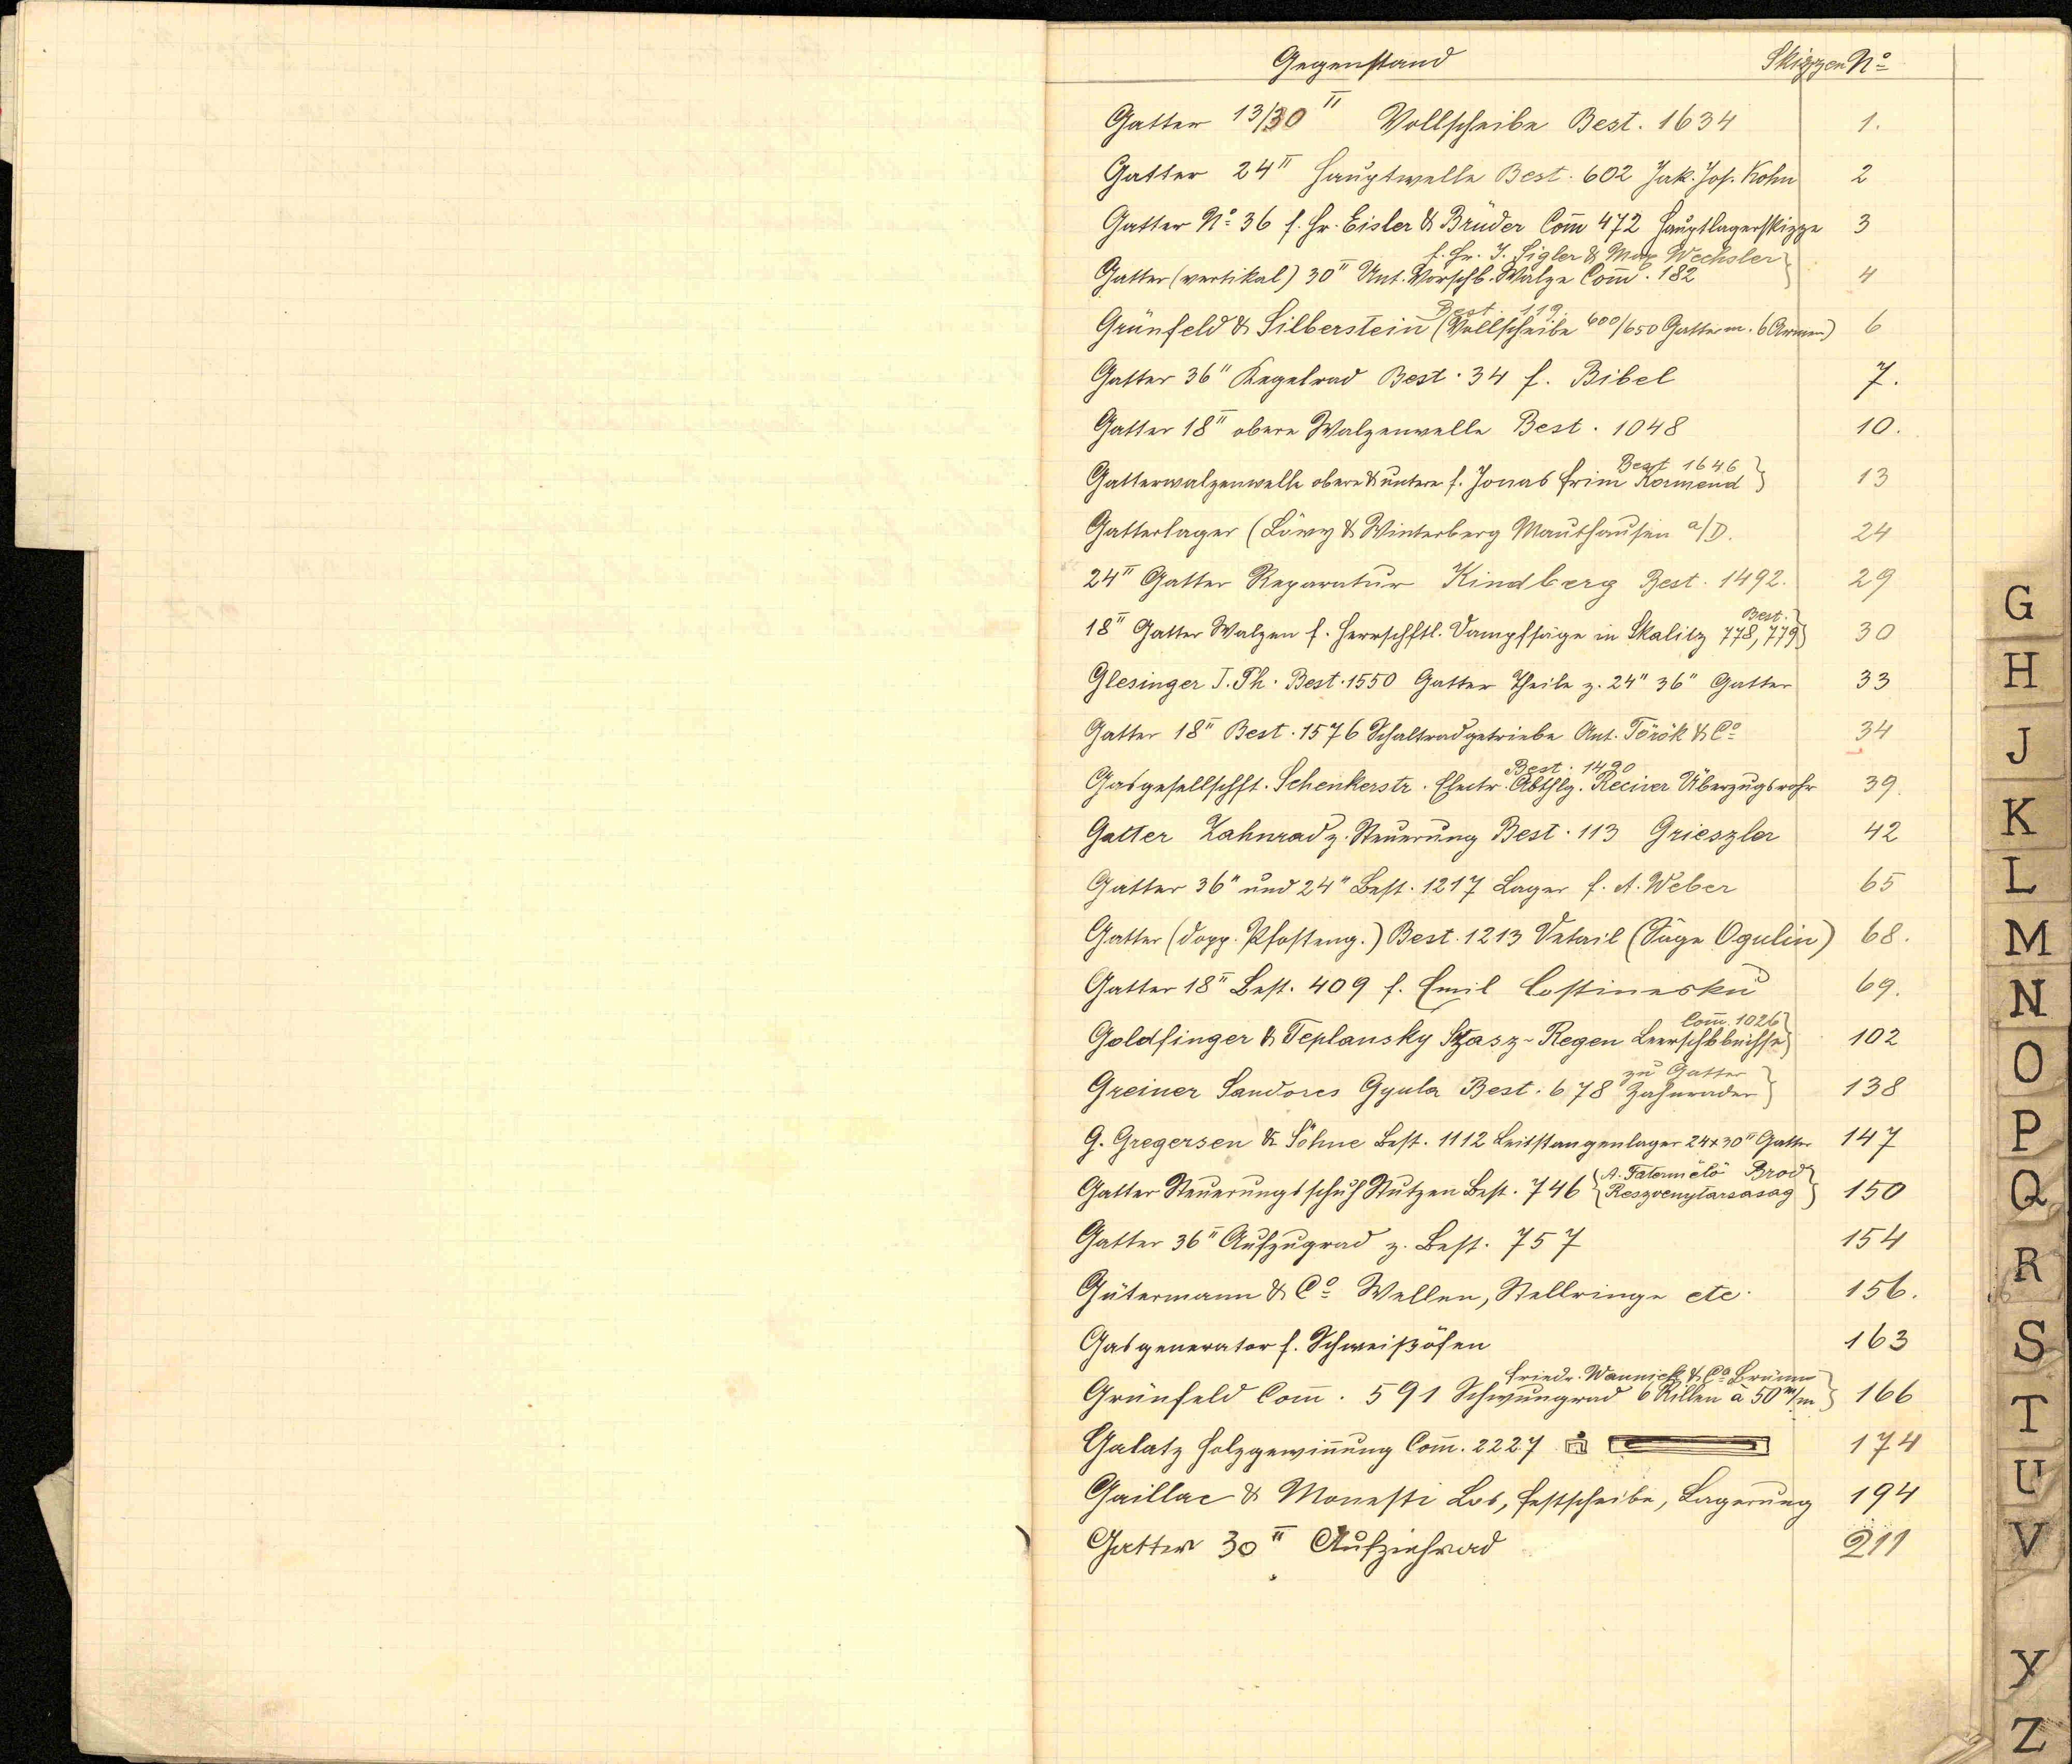 Gegenstand Skizzen Nº
Gatter 13/30" Vollscheibe Best. 1634 1.
Gatter 24" Hauptwelle Best. 602 Jak. Jos. Kohn 2
Gatter Nº 36 f. Hr. Eisler & Brüder Com̄ 472 Hauptlagerskizze 3
f. Hr. J. Sigler & Max Wechsler
Gatter (vertikal) 30" Unt. Vorschb. Walze Com̄. 182 4
Best. 119.
Grünfeld & Silberstein (Vollscheibe 600/650 Gatter m. 6 Armen) 6
Gatter 36" Kegelrad Best. 34 f. Bibel 7.
Gatter 18" obere Walzenwelle Best. 1048 10.
Best 1646
Gatterwalzenwelle obere & untere f. Jonas Frim Kormend 13
Gatterlager (Löwy & Winterberg Mauthausen a/D. 24
24" Gatter Reparatur Kindberg Best. 1492. 29
Best.
18" Gatter Walzen f. Herrschftl. Dampfsäge in Skalitz 778, 779 30
Glesinger J. Ph. Best. 1550 Gatter Theile z. 24" 36" Gatter 33
Gatter 18" Best. 1576 Schaltradgetriebe Ant. Török & Cº 34
Best. 1490
Gasgesellschft. Schenkerstr. Electr. Abthlg. Reciver Überzugsrohr 39.
Gatter Zahnrad z. Steuerung Best. 113 Grieszler 42
Gatter 36" und 24" Best. 1217 Lager f. A. Weber 65
Gatter (dopp. Pfosteng.) Best. 1213 Detail (Säge Ogulin) 68.
Gatter 18" Best. 409 f. Emil Costinesku 69.
Com̄. 1026
Goldfinger & Teplansky Szasz-Regen Leerschbbüchse 102
zu Gatter
Greiner Sandores Gyula Best. 678 Zahnräder 138
G. Gregersen & Söhne Best. 1112 Leitstangenlager 24x30" Gatter 147
A. Fatermëlö Brod
Gatter Steuerungsschuh Stutzen Best. 746 Reszvenytarsasag 150
Gatter 36" Aufzugrad z. Best. 757 154
Gütermann & Cº Wellen, Stellringe etc. 156.
Gasgenerator f. Schweißöfen 163
Friedr. Wannieck & Cº Brünn
Grünfeld Com̄. 591 Schwungrad 6 Rillen à 50 m/m 166
Galatz Holzgewin̄ung Com̄. 2227 174
Gaillac & Monesti Los, Festscheibe, Lagerung 194
Gatter 30" Aufziehrad 211
G
H
J
K
L
M
N
O
P
Q
R
S
T
U
V
Y
Z